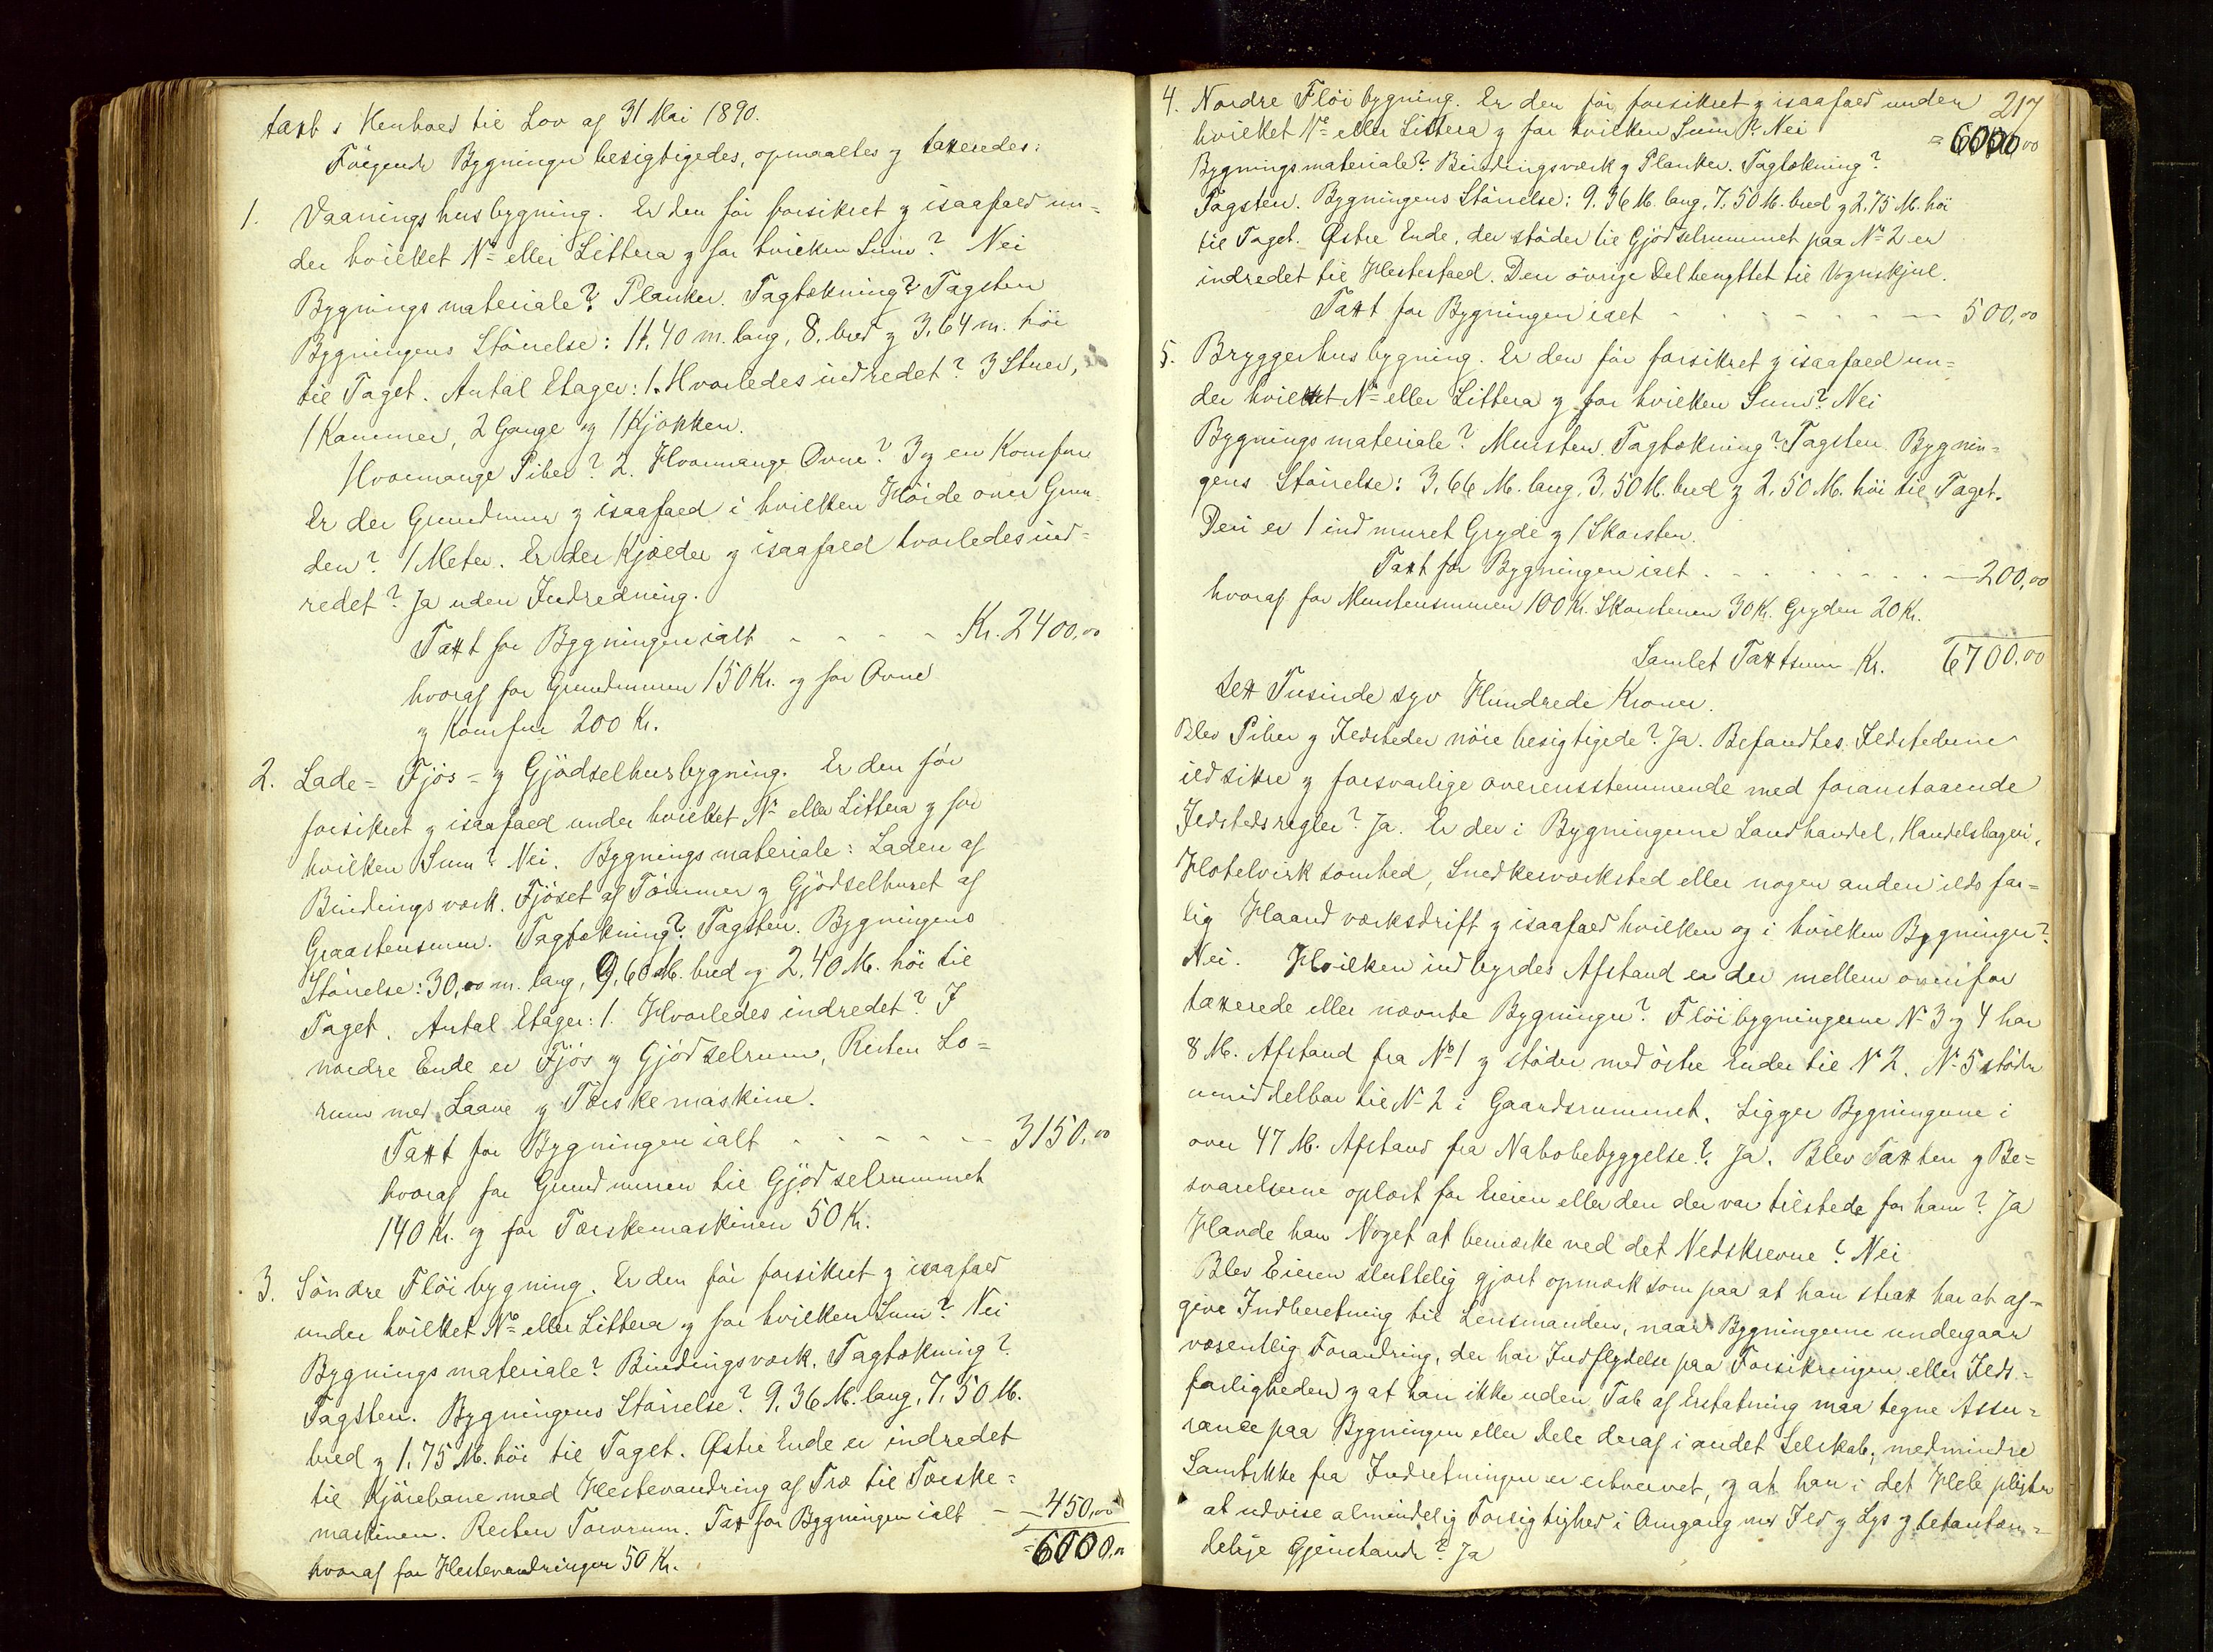 taxt i Henhold til Lov af 31 Mai 1890.
Følgende Bygninger besigtigedes, opmaaltes og taxeredes:
1. Vaaningshusbygning. Er den før forsikret og isaafald un=
der hvilket No eller Littera og for hvilken Sum? Nei
Bygningsmateriale? Planker. Tagtækning? Tagsten
Bygningens Størrelse: 11,40 m. lang, 8. bred og 3,64 m. høi
til Taget. Antal Etager: 1. Hvorledes indredet? 3 Stuer,
1 Kammer, 2 Gange og 1 Kjøkken.
Hvormange Piber? 2. Hvormange Ovne? 3 og en Komfur
Er der Grundmur og isaafald i hvilken Høide over Grun=
den? 1 Meter. Er der Kjælder og isaafald hvorledes ind=
redet? Ja uden Indredning.
Taxt for Bygningen ialt - - - - Kr. 2400,00
hvoraf for Grundmuren 150 Kr. og for Ovne
og Komfur 200 Kr.
2. Lade= Fjøs= og Gjødselhusbygning. Er den før
forsikret og isaafald under hvilket No eller Littera og for
hvilken Sum? Nei. Bygningsmateriale: Laden af
Bindingsværk. Fjøset af Tømmer og Gjødselhuset af
Graastensmur. Tagtækning? Tagsten. Bygningens
Størrelse: 30,00 m. lang, 9,60 M. bred og 2,40 M. høi til
Taget. Antal Etager: 1. Hvorledes indredet? I
nordre Ende er Fjøs og Gjødselrum, Resten Lo=
rum med Laave og Tærskemaskine.
Taxt for Bygningen ialt - - - - - - 3150,00
hvoraf for Grundmuren til Gjødselrummet
140 Kr. og for Tærskemaskinen 50 Kr.
3. Søndre Fløibygning. Er den før forsikret og isaafald
under hvilket No eller Littera og for hvilken Sum? Nei
Bygningsmateriale? Bindingsværk. Tagtækning?
Tagsten. Bygningens Størrelse? 9,36 M. lang, 7,50 M.
bred og 1,75 M. høi til Taget. Østre Ende er indredet
til Kjørebane med Hestevandring af Træ til Tærske=
maskinen. Resten Torvrum. Taxt for Bygningen ialt - 450,00
hvoraf for Hestevandringen 50 Kr. = 6000,00
217
4. Nordre Fløibygning. Er den før forsikret og isaafald under
hvilket No eller Littera og for hvilken Sum? Nei = 6000,00
Bygningsmateriale? Bindingsværk og Planker. Tagtækning?
Tagsten. Bygningens Størrelse: 9,36 M. lang, 7,50 M. bred og 2,75 M. høi
til Taget. Østre Ende, der støder til Gjødselrummet paa No 2 er
indredet til Hestestald. Den øvrige Del benyttet til Vognskjul.
Taxt for Bygningen ialt - - - - - - 500,00
5. Bryggerhusbygning. Er den før forsikret og isaafald un=
der hvilket No eller Littera og for hvilken Sum? Nei
Bygningsmateriale? Mursten. Tagtækning? Tagsten. Bygnin=
gens Størrelse: 3,66 M. lang, 3,50 M. bred og 2,50 M. høi til Taget.
Deri er 1 indmuret Gryde og 1 Skorsten.
Taxt for Bygningen ialt - - - - - - 200,00
hvoraf for Murstensmuren 100 Kr. Skorstenen 30 Kr. Gryden 20 Kr.
Samlet Taxtsum Kr. 6700,00
Sex Tusinde syv Hundrede Kroner.
Blev Piber og Ildsteder nøie besigtigede? Ja. Befandtes Ildstederne
ildsikre og forsvarlige overensstemmende med foranstaaende
Ildstedsregler? Ja. Er der i Bygningerne Landhandel, Handelsbageri,
Hotelvirksomhed, Snedkerværksted eller nogen anden ildsfar=
lig Haandværksdrift og isaafald hvilken og i hvilken Bygninger?
Nei. Hvilken indbyrdes Afstand er der mellem ovenfor
taxerede eller nævnte Bygninger? Fløibygningerne No 3 og 4 har
8 M. Afstand fra No 1 og støder med østre Ender til No 2. No 5 støder
umiddelbar til No 2 i Gaardsrummet. Ligger Bygningerne i
over 47 M. Afstand fra Nabobebyggelse? Ja. Blev Taxten og Be=
svarelserne oplæst for Eieren eller den der var tilstede for ham? Ja
Havde han Noget at bemærke ved det Nedskrevne? Nei
Blev Eieren sluttelig gjort opmærksom paa at han strax har at af=
give Indberetning til Lensmanden, naar Bygningerne undergaar
væsentlig Forandring, der har Indflydelse paa Forsikringen eller Ilds=
farligheden og at han ikke uden Tab af Erstatning maa tegne Assu=
rance paa Bygningen eller Dele deraf i andet Selskab, medmindre
Samtykke fra Indretningen er erhvervet, og at han i det Hele pligter
at udvise almindelig Forsigtighed i Omgang med Ild og Lys og letantæn=
delige Gjenstande? Ja